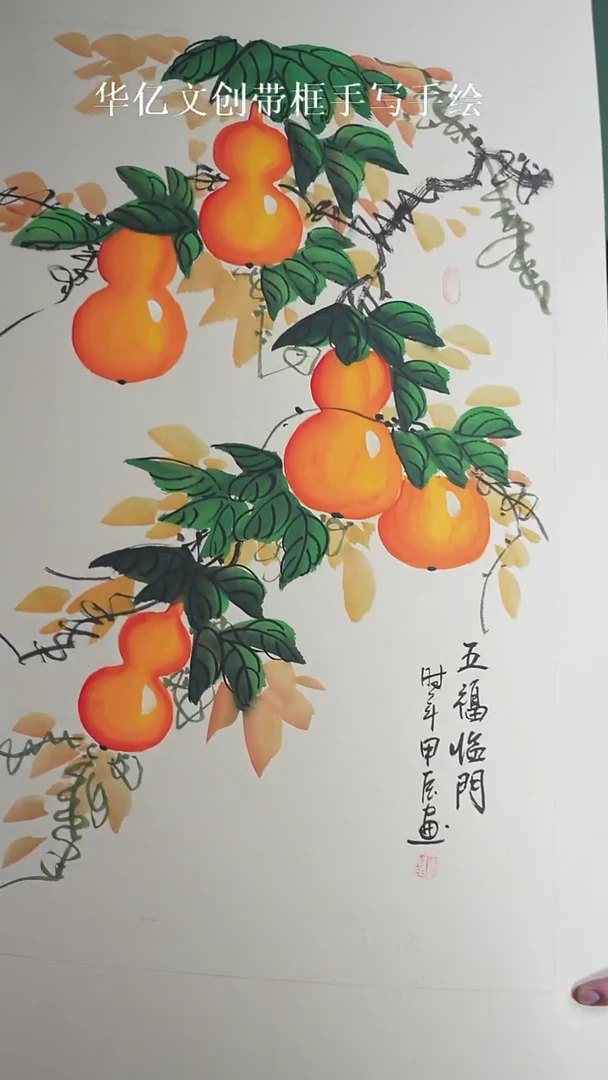 华亿文创带框手写手绘
五福临門
时年甲辰画